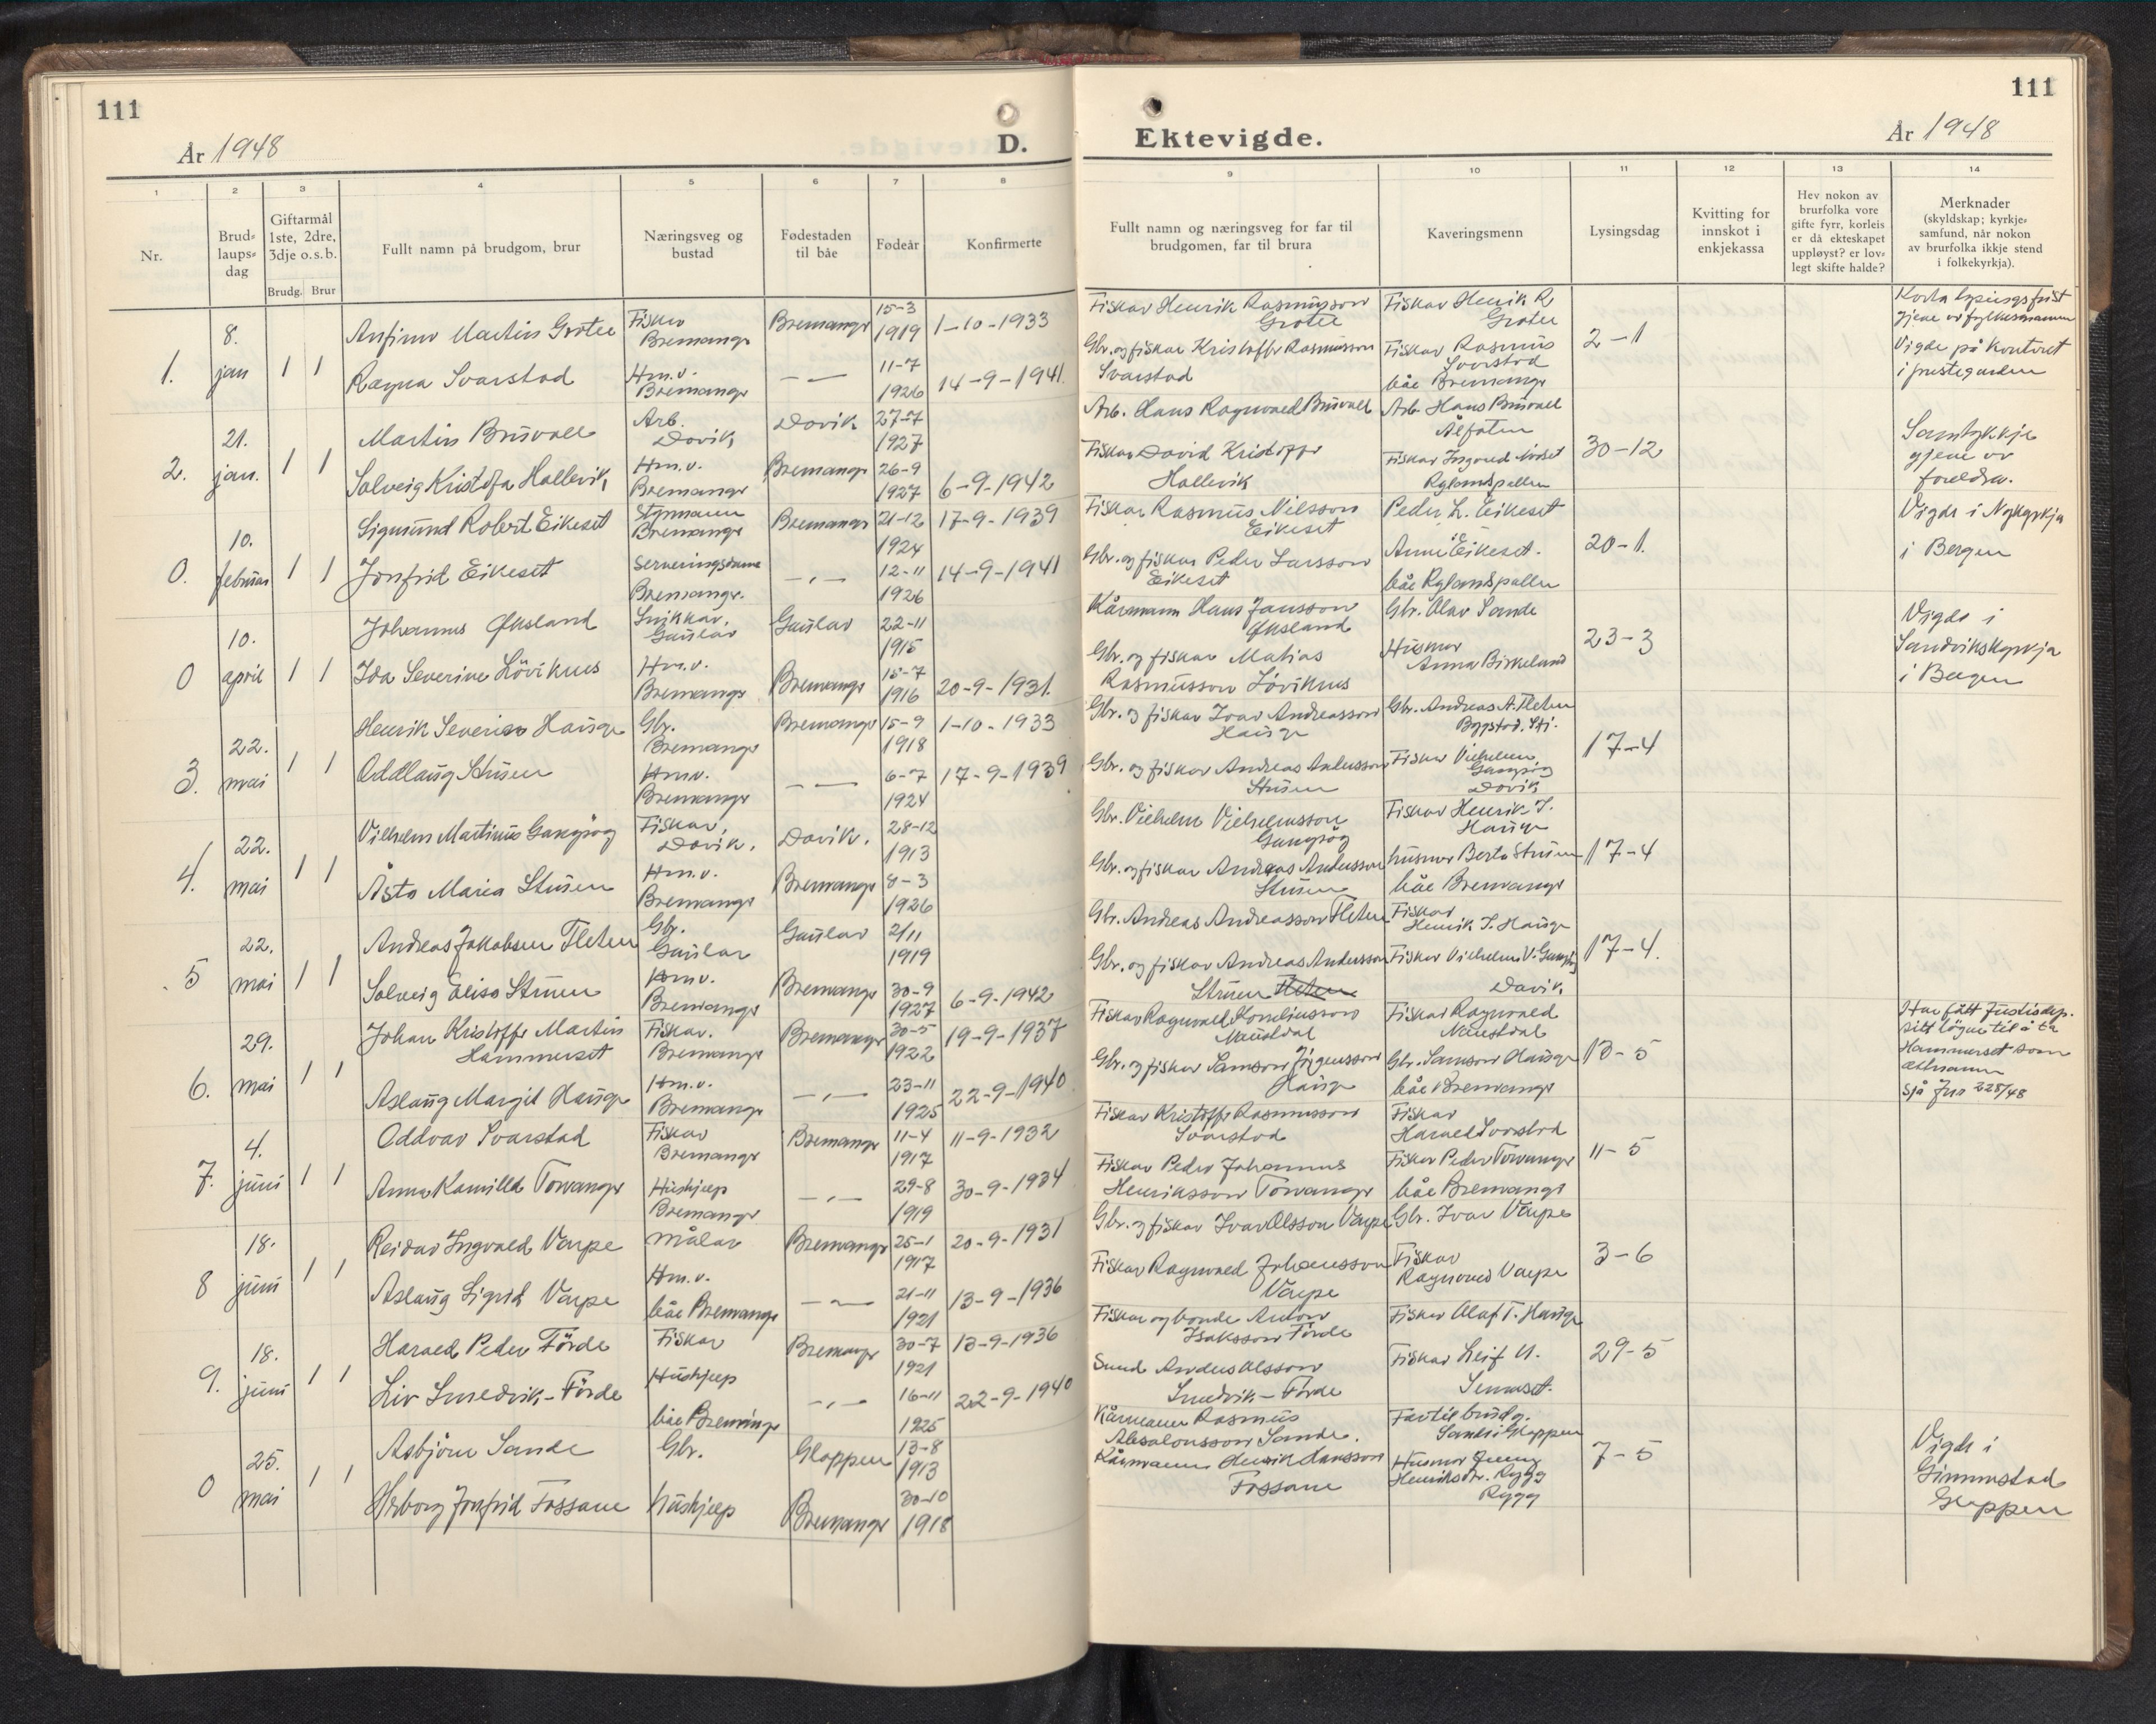 111
År 1948
D.
1 2 3 4 5 6 7 8
Nr.
Brudlaupsdag
Giftarmål 1ste, 2dre, 3dje o.s.b.
Brudg. Brur
Fullt namn på brudgom, brur
Næringsveg og bustad
Fødestaden til båe
Fødeår
Konfirmerte
1. 8. jan 1 1
Anfinn Martin Grotle Fiskar Bremanger Bremanger 15-3 1919 1-10-1933
Ragna Svarstad Hm.v. Bremanger — — 11-7 1926 14-9-1941.
2. 21. jan. 1 1
Martin Brüvoll Arb. Davik Davik 27-7 1927
Solveig Kristofa Hallevik Hm.v. Bremanger Bremanger 26-9 1927 6-9-1942
0. 10. februar 1 1
Sigmund Robert Eikeset Styrmann Bremanger Bremanger 21-12 1924 17-9-1939
Jonfrid Eikeset Serveringsdame Bremanger. —,— 12-11 1926 14-9-1941
0 10. april 1 1
Johannes Øksland Snikkar, Gaular Gaular 22-11 1915
Ida Severine Löviknes Hm.v. Bremanger Bremanger 15-7 1916 20-9-1931.
3. 22. mai 1 1
Henrik Severin Hauge Gbr. Bremanger Bremanger 15-9 1918 1-10-1933
Oddlaug Struen Hmv. Bremanger — — 6-7 1924 17-9-1939
4. 22. mai 1 1
Vilhelm Martinus Gangsøy Fiskar, Davik. Davik. 28-12 1913
Åsta Maria Struen Hm.v. Bremanger Bremanger 8-3 1926
5 22. mai 1 1
Andreas Jakobsen Fleten Gbr. Gaular Gaular 2/11 1919
Solveig Elisa Struen Hmv. Bremanger Bremanger 30-9 1927 6-9-1942
6. 29. mai 1 1
Johan Kristoffer Martin Hammerset Fiskar. Bremanger Bremanger 30-5 1922 19-9-1937
Aslaug Margit Hauge Hm.v. Bremanger —,— 23-11 1925 22-9-1940
7. 4. juni 1 1
Oddvar Svarstad Fiskar Bremanger Bremanger 11-4 1917 11-9-1932
Anna Kamilla Torvanger Hushjelp Bremanger —,— 29-8 1919 30-9-1934
8 18. juni 1 1
Reidar Ingvald Varpe Målar Bremanger 25-1 1917 20-9-1931
Aslaug Sigrid Varpe Hm.v. båe Bremanger — — 21-11 1921 13-9-1936
9. 18. juni 1 1
Harald Peder Förde Fiskar Bremanger 30-7 1921 13-9-1936
Liv Smedvik-Förde Hushjelp båe Bremanger —,— 16-11 1925 22-9-1940
0 25. mai 1 1
Asbjörn Sande Gbr. Gloppen 13-8 1913
Herborg Jonfrid Fossane hushjelp Bremanger 30-10 1918
Ektevigde.
111
År 1948
9 10 11 12 13 14
Fullt namn og næringsveg for far til brudgomen, far til brura
Kaveringsmenn
Lysingsdag
Kvitting for innskot i enkjekassa
Hev nokon av brurfolka vore gifte fyrr, korleis er då ekteskapet uppløyst? er lovlegt skifte halde?
Merknader (skyldskap; kyrkjesamfund, når nokon av brurfolka ikkje stend i folkekyrkja).
Fiskar Henrik Rasmusson Grotle
Fiskar Henrik R Grotle
Gbr. og fiskar Kristoffer Rasmusson Svarstad
Fiskar Rasmus Svarstad båe Bremanger
2-1
Korta lysingsfrist gjeve av fylkesmannen
Vigde på kontoret i prestegarden
Arb. Hans Ragnvald Brüvoll
Arb. Hans Brüvoll Ålfoten
Fiskar David Kristoffer Hallevik
Rylandspollen
30-12
Samtykkje gjeve av foreldra.
Fiskar Rasmus Nilsson Eikeset
Peder L. Eikeset
Gbr. og fiskar Peder Larsson Eikeset
Anne Eikeset. båe Rylandspollen
20-1.
Vigde i Nykyrkja i Bergen
Kårmann Hans Jansson Øksland
Gbr. Olav Sande
Gbr. og fiskar Matias Rasmusson Löviknes
Husmor Anna Birkeland
23-3
Vigde i Sandvikskyrkja i Bergen
Gbr. og fiskar Ivar Andreasson Hauge
Gbr. Andreas A. Fleten Bygstad.
Gbr. og fiskar Andreas Andersson Struen
Fiskar Vilhelm Gangsøy Davik
17-4
Gbr. Vilhelm Vilhelmsson Gangsøy
Fiskar Henrik I. Hauge
Gbr. og fiskar Andreas Andersson Struen
husmor Berta Struen båe Bremanger
17-4
Gbr. Andreas Andreasson Fleten
Fiskar Henrik I. Hauge
Gbr. og fiskar Andreas Andersson Struen Fleten
Fiskar Vilhelm V. Gangsøy Davik
17-4.
Fiskar Ragnvald Korneliusson Naustdal
Fiskar Ragnvald Naustdal
Gbr. og fiskar Samson Jörgensson Hauge
Gbr. Samson Hauge båe Bremanger
13-5
Har fått Justisdep. sitt löyve til å ta Hammerset som
Sjå Jnr 225/48
Fiskar Kristoffer Rasmusson Svarstad
Fiskar Harald Svarstad
Fiskar Peder Johannes Henriksson Torvanger
Fiskar Peder Torvanger båe Bremanger
11-5
Gbr. og fiskar Ivar Olsson Varpe
Gbr. Ivar Varpe
Fiskar Ragnvald Johansson Varpe
Fiskar Ragnvald Varpe
3-6
Fiskar og bonde Anton Isaksson Förde
Fiskar Olaf T. Hauge
Smed Anders Olsson Smedvik-Förde
Fiskar Leif
29-5
Kårmann Rasmus Absalonsson Sande.
Far til brudg. Sande i Gloppen
Kårmann Henrik Hansson Fossane
Husmor Jenny Henriksdtr. Rygg Rygg
7-5
Vigde i Gimmestad Gloppen